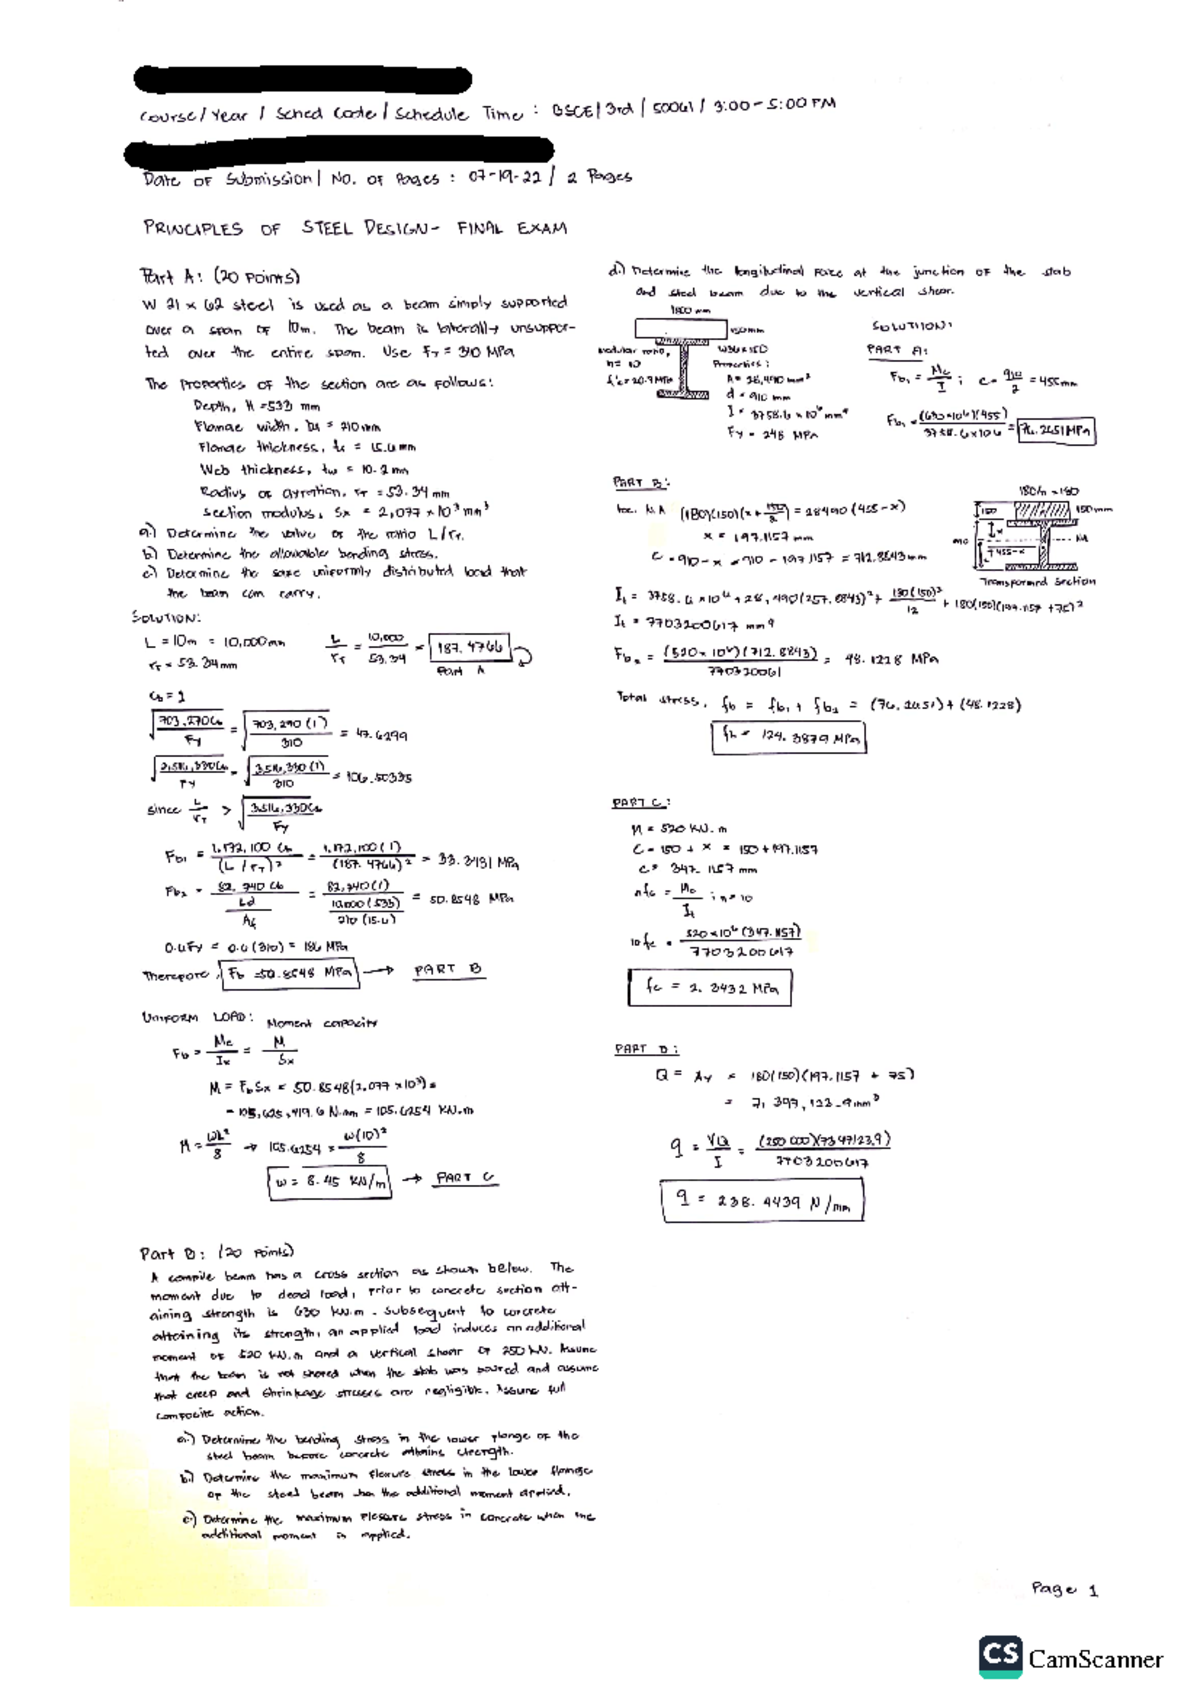 Course/Year / Sched Code / Schedule Time : BSCE/3rd / 50061 / 3:00-5:00 PM
Date of Submission / No. of Pages : 07-19-22 / 2 Pages
PRINCIPLES OF STEEL DESIGN- FINAL EXAM
Part A: (20 Points)
W 21 x 62 steel is used as a beam simply supported
over a span of 10m. The beam is laterally unsuppor-
ted over the entire span. Use Fy = 310 MPa
The properties of the section are as follows:
Depth, H = 533 mm
Flange width, bf = 210 mm
Flange thickness, tf = 15.6 mm
Web thickness, tw = 10.2 mm
Radius of gyration, rT = 53.34 mm
Section modulus, Sx = 2,077 x 10³ mm³
a.) Determine the value of the ratio L/rT.
b) Determine the allowable bending stress.
c) Determine the safe uniformly distributed load that
the beam can carry.
SOLUTION:
L = 10m = 10,000mm
rT = 53.34mm
L/rT = 10,000/53.34 = 187.4766
Part A
Cb = 1
√(703,270Cb/Fy) = √(703,270(1)/310) = 47.6299
√(3,516,330Cb/Fy) = √(3,516,330(1)/310) = 106.50335
since L/rT > √(3,516,330Cb/Fy)
Fb1 = 1,172,100 Cb/(L/rT)² = 1,172,100(1)/(187.4766)² = 33.3481 MPa
Fb2 = 82,740 Cb/(Ld/Af) = 82,740(1)/(10,000(533)/210(15.6)) = 50.8548 MPa
0.6Fy = 0.6(310) = 186 MPa
Therefore, Fb = 50.8548 MPa → PART B
UNIFORM LOAD: Moment capacity
Fb = Mc/Ix = M/Sx
M = FbSx = 50.8548(2,077 x 10³) =
= 105,625,419.6 N.mm = 105.6254 KN.m
M = wL²/8 → 105.6254 = w(10)²/8
w = 8.45 KN/m → PART C
Part B: (20 points)
A compile beam has a cross section as shown below. The
moment due to dead load, prior to concrete section att-
aining strength is 630 kN.m. Subsequent to concrete
attaining its strength, an applied load induces an additional
moment of 520 kN.m and a vertical shear of 250 kN. Assume
that the beam is not shored when the slab was poured and assume
that creep and shrinkage stresses are negligible. Assume full
composite action.
a.) Determine the bending stress in the lower flange of the
steel beam before concrete attains strength.
b.) Determine the maximum flexure stress in the lower flange
of the steel beam when the additional moment applied.
c.) Determine the maximum flexure stress in concrete when the
additional moment is applied.
d.) Determine the longitudinal force at the junction of the slab
and steel beam due to the vertical shear.
1800 mm
150mm
modular ratio,
n = 10
f'c = 20.7 MPa
W36x150
Properties:
A = 28,490 mm²
d = 910 mm
I = 3758.6 x 10⁶ mm⁴
Fy = 248 MPa
SOLUTION:
PART A:
Fb1 = Mc/I ; c = 910/2 = 455mm
Fb1 = (630x10⁶)(455)/3758.6x106 = 76.2651MPa
PART B:
loc. N.A (180)(150)(x + 150/2) = 28490(455-x)
x = 197.1157 mm
c = 910-x = 910 - 197.1157 = 712.8843mm
180/n = 180
150
150mm
x
910
455-x
NA
Transformed Section
It = 3758.6 x10⁶ + 28,490(257.8843)² + 180(150)³/12 + 180(150)(197.1157 +75)²
It = 7703200617 mm⁴
Fb2 = (520x10⁶)(712.8843)/770320061 = 48.1228 MPa
Total stress, fb = fb1 + fb2 = (76.2651)+(48.1228)
fb = 124.3879 MPa
PART C:
M = 520 KN.m
c = 150 + x = 150 + 197.1157
c = 347.1157 mm
nfc = Mc/It ; n = 10
10fc = 520x10⁶(347.1157)/7703200617
fc = 2.3432 MPa
PART D:
Q = Ay = 180(150)(197.1157 + 75)
= 7,347,123.9mm³
q = VQ/I = (250 000)(7347123.9)/7703200617
q = 238.4439 N/mm
Page 1
CS CamScanner